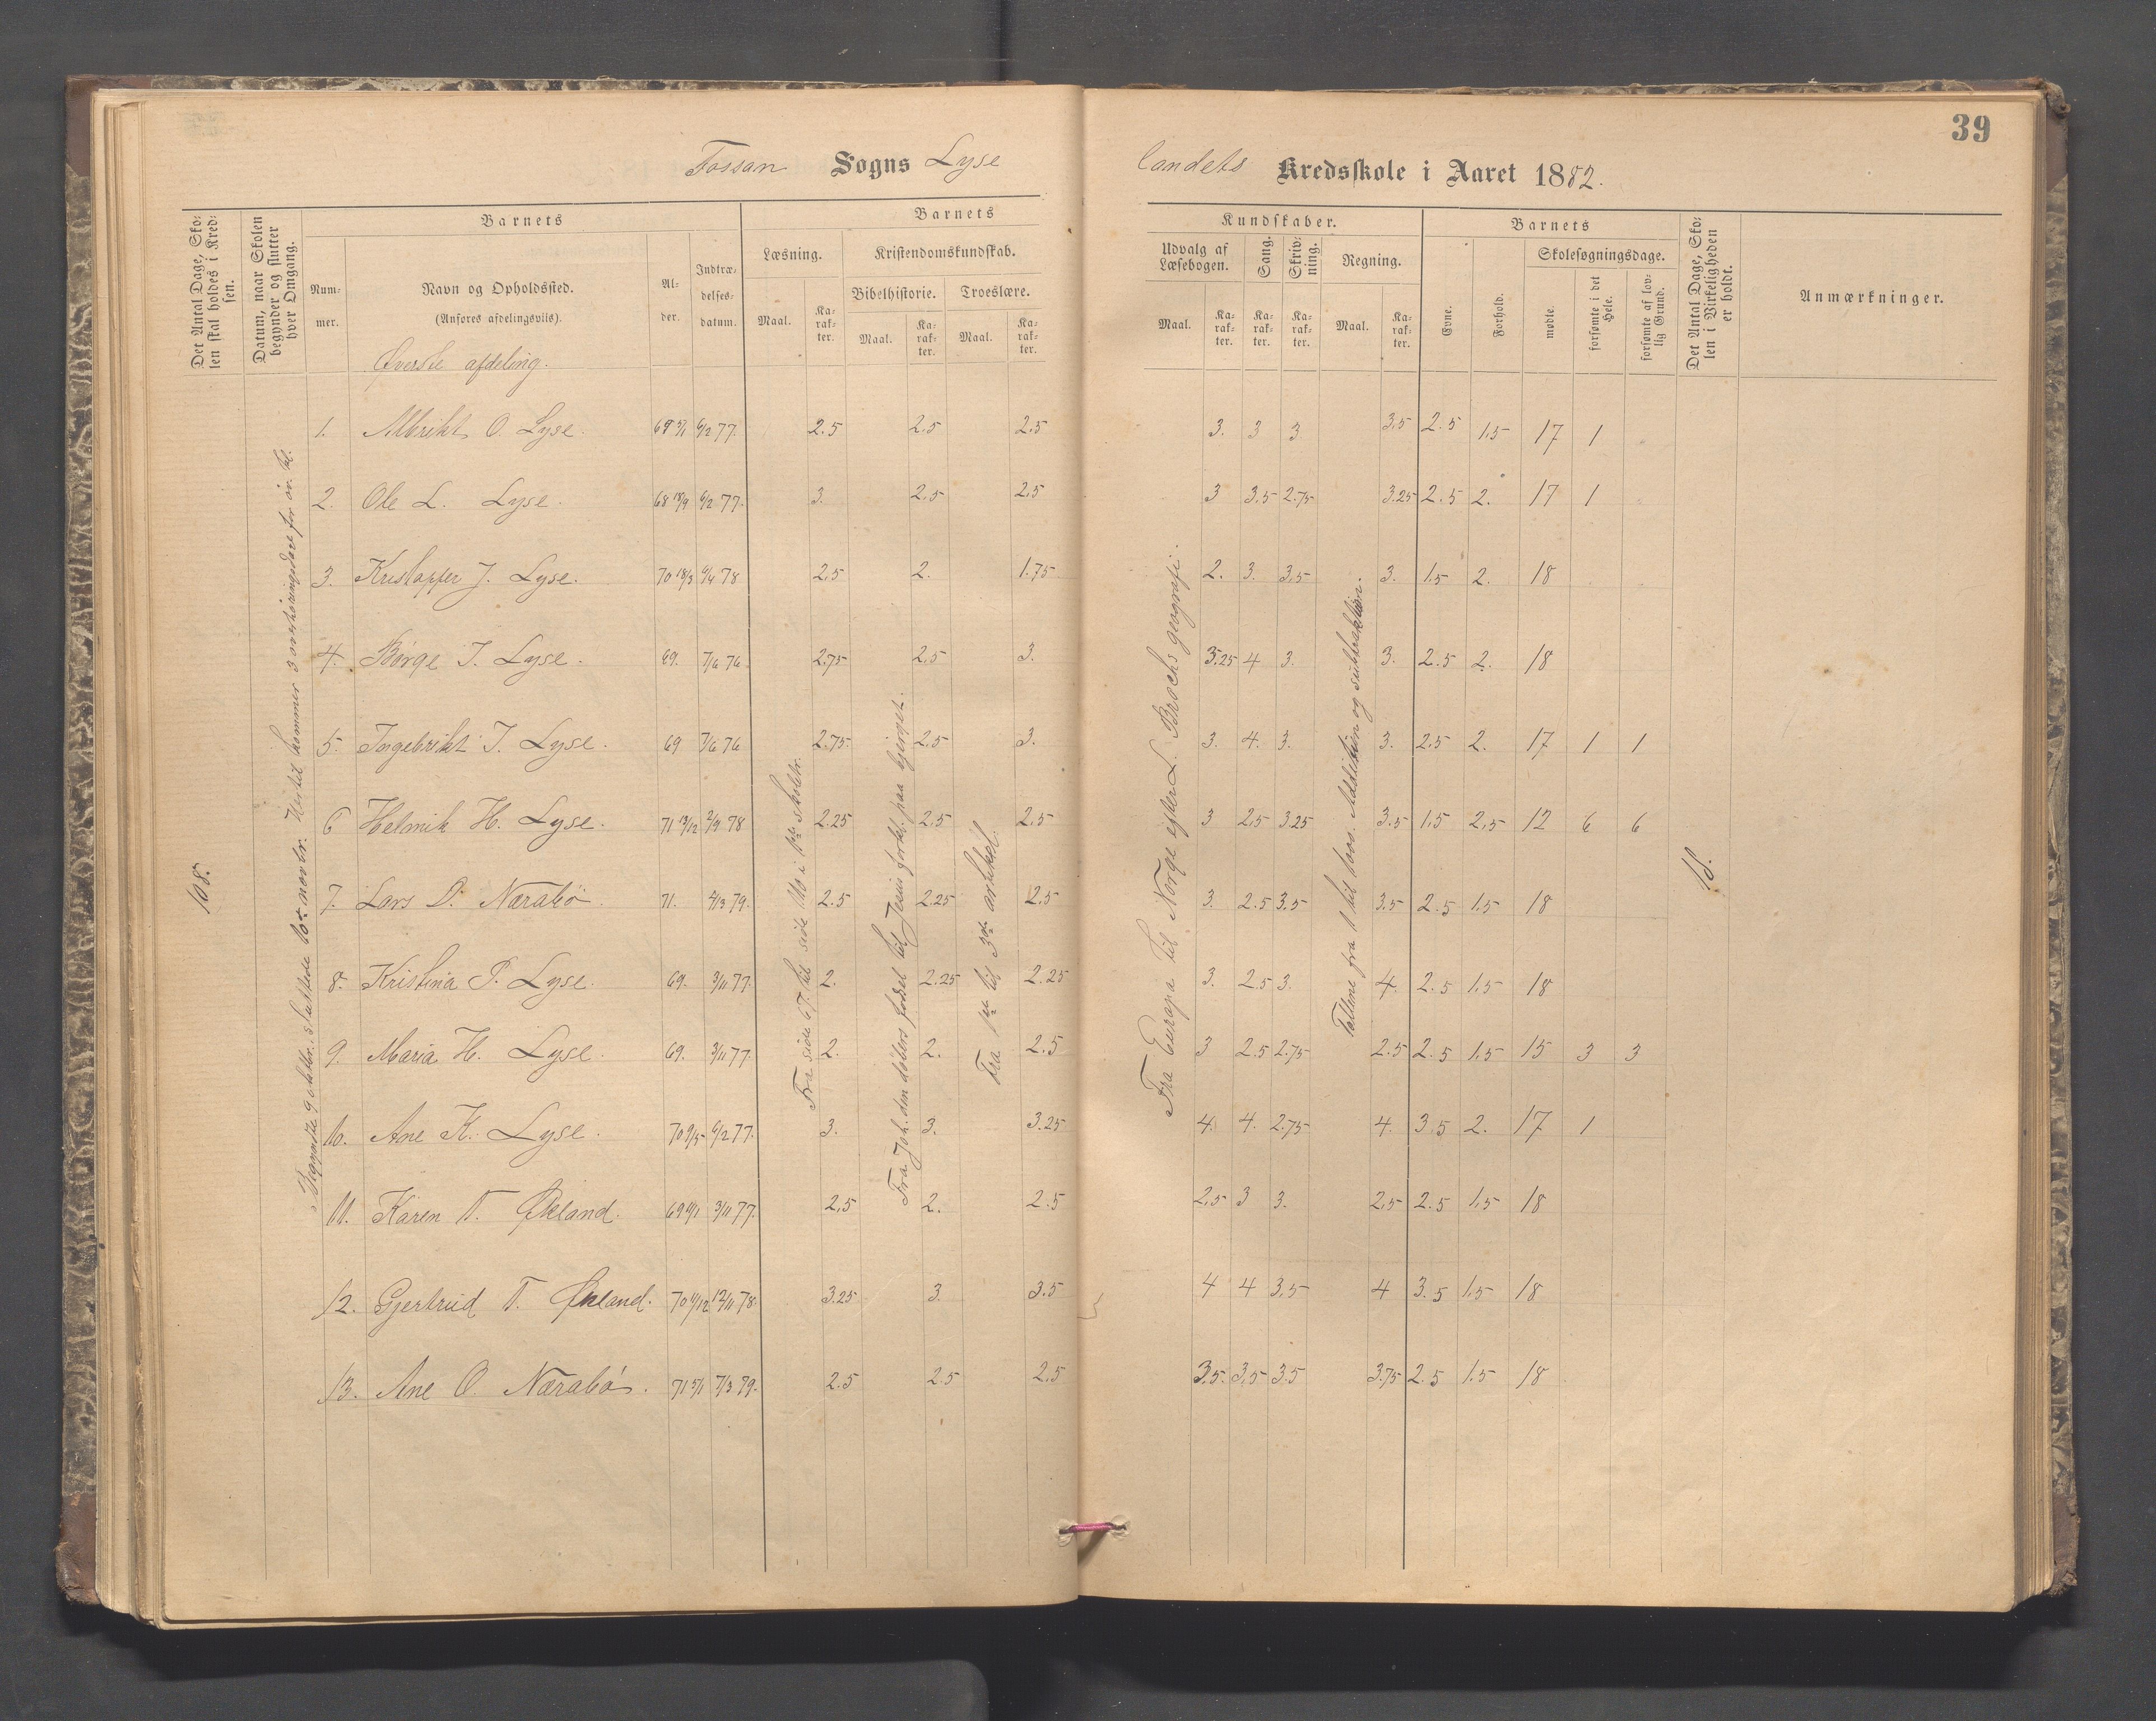 39
Fossan Sogns Lyse
landets Kredsskole i Aaret 1882.
Det Antal Dage, Sko-
len skal holdes i Kred-
sen.
Datum, naar Skolen
begynder og slutter
hver Omgang.
Barnets
Num-
mer.
Navn og Opholdssted.
(Anføres afdelingsviis).
Al-
der.
Indtræ-
delses-
datum.
Barnets
Læsning.
Kristendomskundskab.
Bibelhistorie.
Troeslære.
Maal.
Ka-
rak-
ter.
Maal.
Ka-
rak-
ter.
Maal.
Ka-
rak-
ter.
Kundskaber.
Udvalg af
Læsebogen.
Sang.
Skriv-
ning.
Regning.
Maal.
Ka-
rak-
ter.
Ka-
rak-
ter.
Ka-
rak-
ter.
Maal.
Ka-
rak-
ter.
Barnets
Evne.
Forhold.
Skolesøgningsdage.
mødte.
forsømte i det
Hele.
forsømte af lov-
lig Grund.
Det Antal Dage, Sko-
len i Virkeligheden
er holdt.
Anmærkninger.
Øverste afdeling.
1. O. Lyse. 69 5/1 6/2 77. 2.5 2.5 2.5 3. 3 3 3.5 2.5 1.5 17 1
2. Ole L. Lyse. 68 18/9 6/2 77. 3. 2.5 2.5 3 3.5 2.75 3.25 2.5 2. 17 1
3. Kristoffer J. Lyse. 70 18/3 9/4 78 2.5 2. 1.75 2. 3. 3.5 3. 1.5 2. 18
4. Børge T. Lyse. 69. 7/6 76. 2.75 2.5 3. 3.25 4 3. 3. 2.5 2. 18
5. Ingebrikt T. Lyse. 69 7/6 76 2.75. 2.5 3. 3. 4. 3. 3. 2.5 2. 17 1 1
6 Helmik H. Lyse. 71 13/12 2/9 78 2.25 2.5 2.5 3 2.5 3.25 3.5 1.5 2.5 12 6 6
7. Lars D. Nærabø. 71. 4/3 79. 2.5 2.25 2.5 3. 2.5 3.5 3.5 2.5 1.5 18
8. Kristina P. Lyse. 69. 3/11 77. 2. 2.25 2.25 3. 2.5 3. 4. 2.5 1.5 18
9. Maria H. Lyse. 69. 3/11 77. 2. 2. 2.5 3 2.5 2.75 2.5 2.5 1.5 15 3 3
10. Ane K. Lyse. 70 9/5 6/2 77. 3. 3. 3.25 4. 4. 2.75 4. 3.5 2. 17 1
11. Karen T. Økland. 69 6/1 3/11 77. 2.5 2. 2.5 2.5 3 3. 2.5 2.5 1.5 18
12. Gjertrud T. Økland. 70 4/12 12/11 78. 3.25 3. 3.5 4 4 3.5 4 3.5 1.5 18
13. Ane O. Nærabø. 71 5/1 7/3 79. 2.5 2.5 2.5 3.5. 3.5 3.5 3.75 2.5 1.5 18
108.
Begyndte 9 oktbr., sluttede 10de novbr. Hertil kommer 3 overhøringsdage for øv. kl.
Fra side 67 til side 110 i 1ste skoletr.
Fra Joh. den døbers fødsel til Jesu forkl. paa bjerget.
Fra 1ste til 3die artikel.
Fra Europa til Norge efter L. Brochs geografi.
Tallene fra 1 til 1000. Addition og subtraktion.
18.